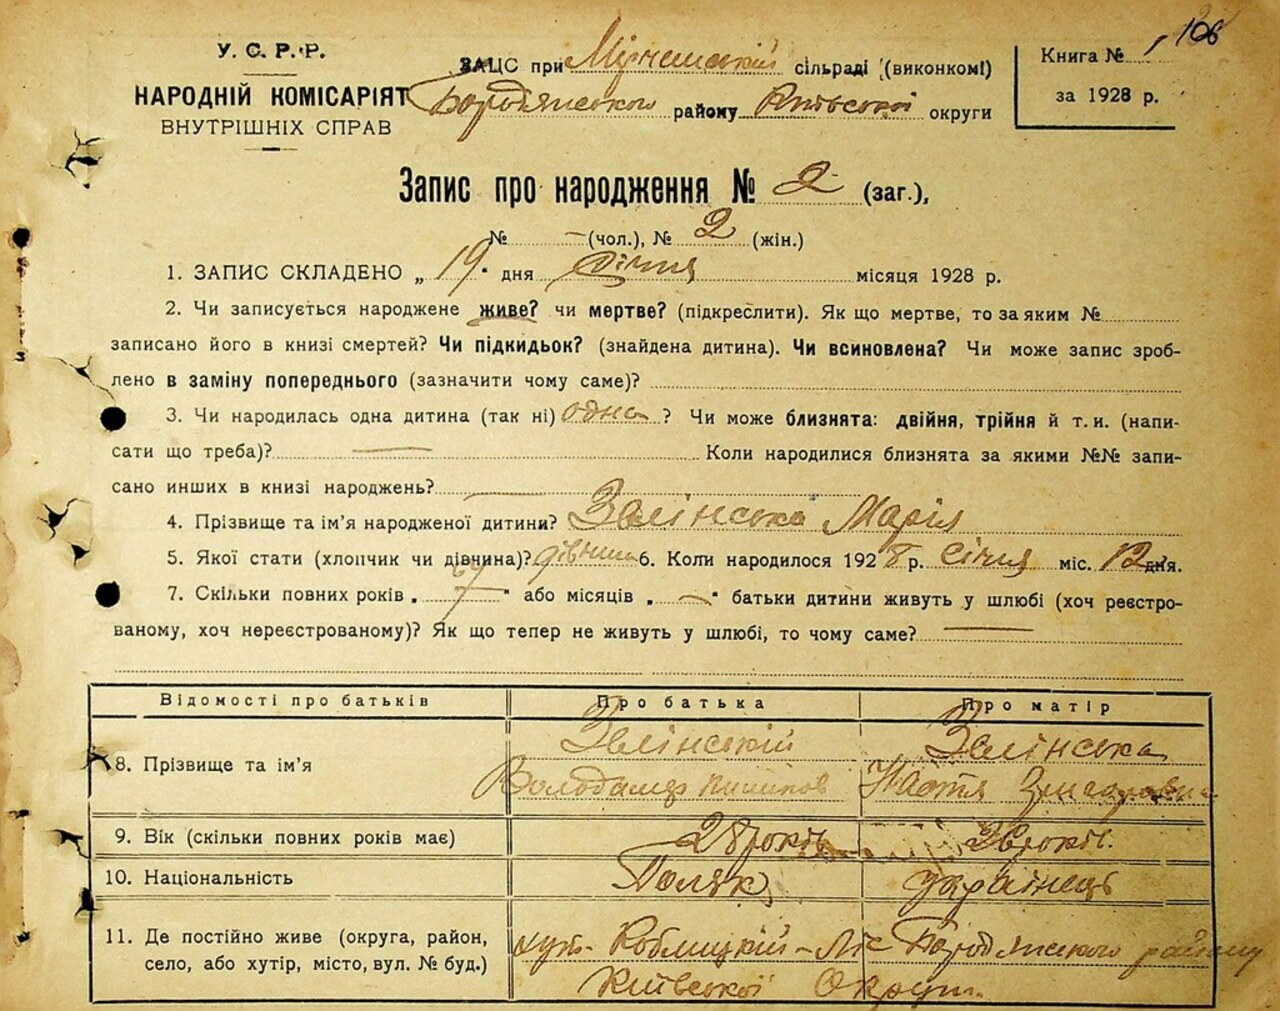 106
У. С. Р. Р.
НАРОДНІЙ КОМІСАРІЯТ
ВНУТРІШНІХ СПРАВ
ЗАЦС при сільраді (виконкомі)
Бородянського району Київської округи
Книга № 1
за 1928 р.
Запис про народження № 2 (заг.),
№ – (чол.), № 2 (жін.)
1. ЗАПИС СКЛАДЕНО „ 19 " дня січня місяця 1928 р.
2. Чи записується народжене живе? чи мертве? (підкреслити). Як що мертве, то за яким №
записано його в книзі смертей? Чи підкидьок? (знайдена дитина). Чи всиновлена? Чи може запис зроб-
лено в заміну попереднього (зазначити чому саме)?
3. Чи народилась одна дитина (так ні) одна ? Чи може близнята: двійня, трійня й т. и. (напи-
сати що треба)? — Коли народилися близнята за якими №№ запи-
сано инших в книзі народжень? —
4. Прізвище та ім'я народженої дитини? Звлінська Марія
5. Якої стати (хлопчик чи дівчина)? дівчина 6. Коли народилося 1928 р. січня міс. 12 дня.
7. Скільки повних років „ " або місяців „ — " батьки дитини живуть у шлюбі (хоч реєстро-
ваному, хоч нереєстрованому)? Як що тепер не живуть у шлюбі, то чому саме? —
Відомості про батьків Про батька Про матір
8. Прізвище та ім'я Звлінській Звлінська
Володимер Настя
9. Вік (скільки повних років має) 28 років років.
10. Національність Поляк Українець
11. Де постійно живе (округа, район, хут. Коблицкій-Ліс Бородянського району
село, або хутір, місто, вул. № буд.) Київської Округи.